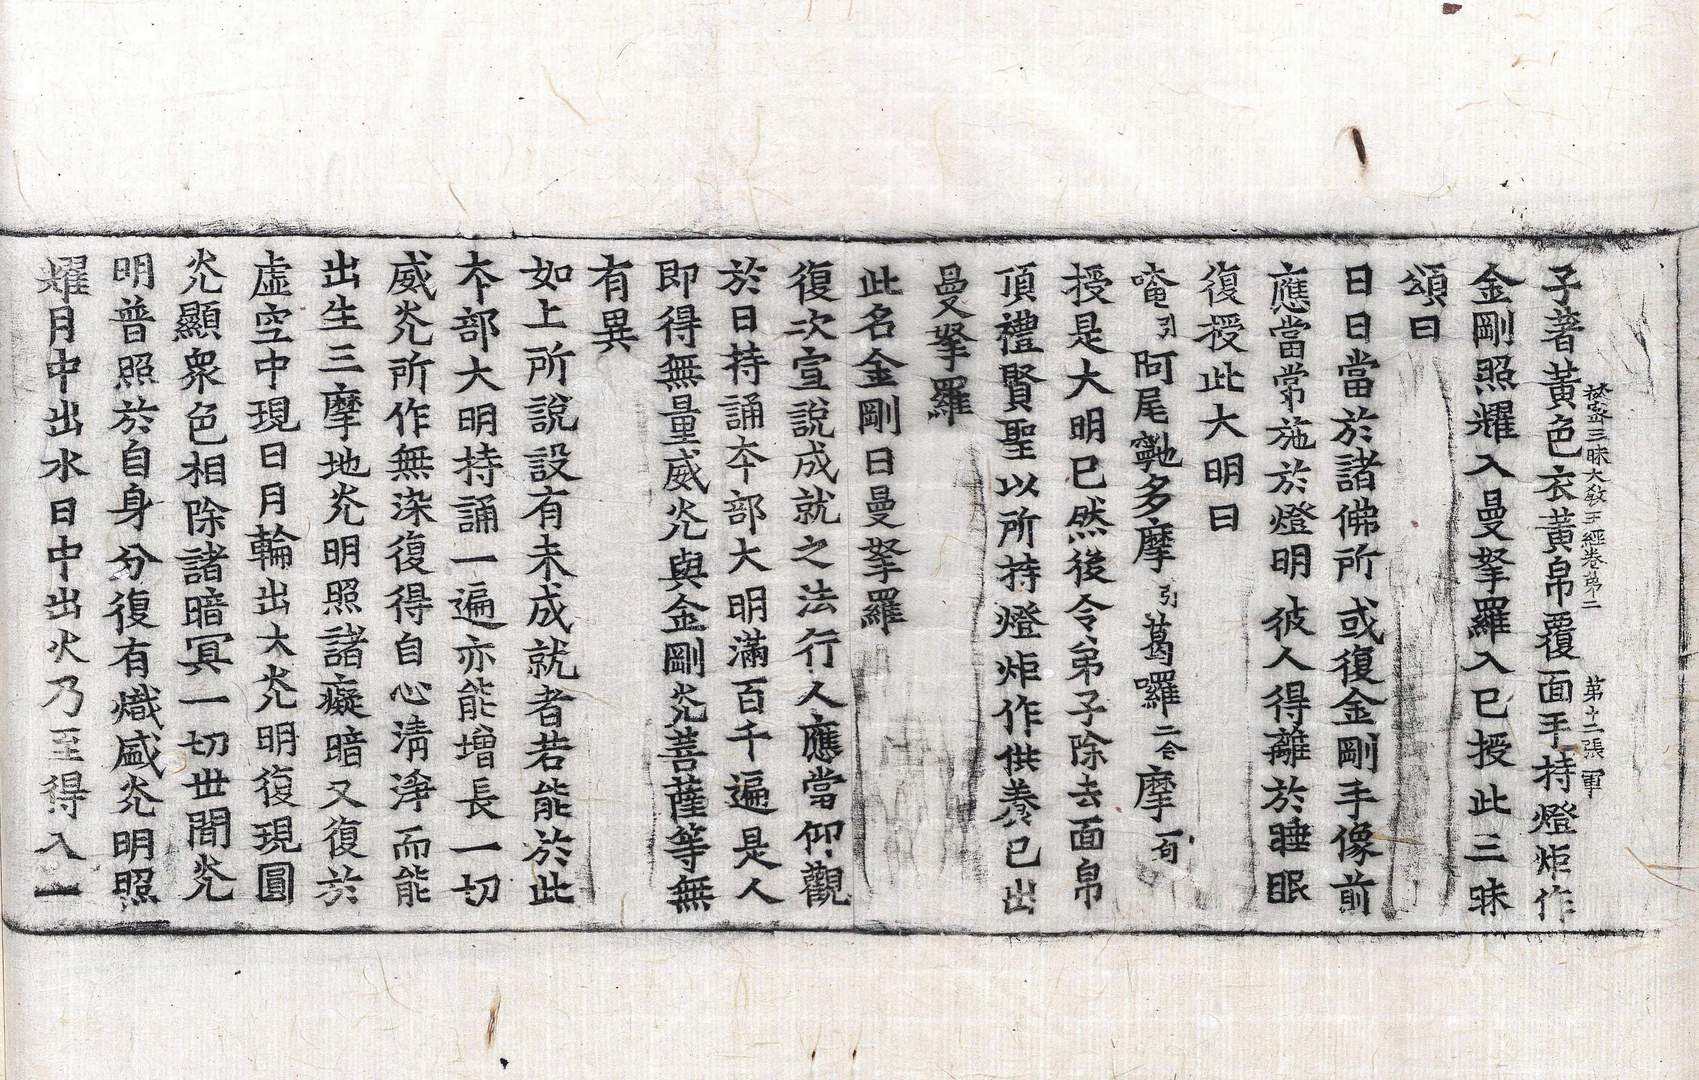 子著黃色衣黃帛覆面手持燈炬作
秘密三昧大教王經卷第二 第十二張 軍
金剛照耀入曼拏羅入已授此三昧
頌曰
日日當於諸佛所或復金剛手像前
應當常施於燈明彼人得離於睡眠
復授此大明曰
唵引阿尾𪘨多摩引葛囉二合摩一句
授是大明已然後令弟子除去面帛
頂禮賢聖以所持燈炬作供養已出
曼拏羅
此名金剛日曼拏羅
復次宣說成就之法行人應當仰觀
於日持誦夲部大明滿百千遍是人
即得無量威光與金剛光菩薩等無
有異
如上所說設有未成就者若能於此
夲部大明持誦一遍亦能增長一切
威光所作無染復得自心清淨而能
出生三摩地光明照諸癡暗又復於
虛空中現日月輪出大光明復現圓
光顯衆色相除諸暗冥一切世間光
明普照於自身分復有熾盛光明照
耀月中出水日中出火乃至得入一